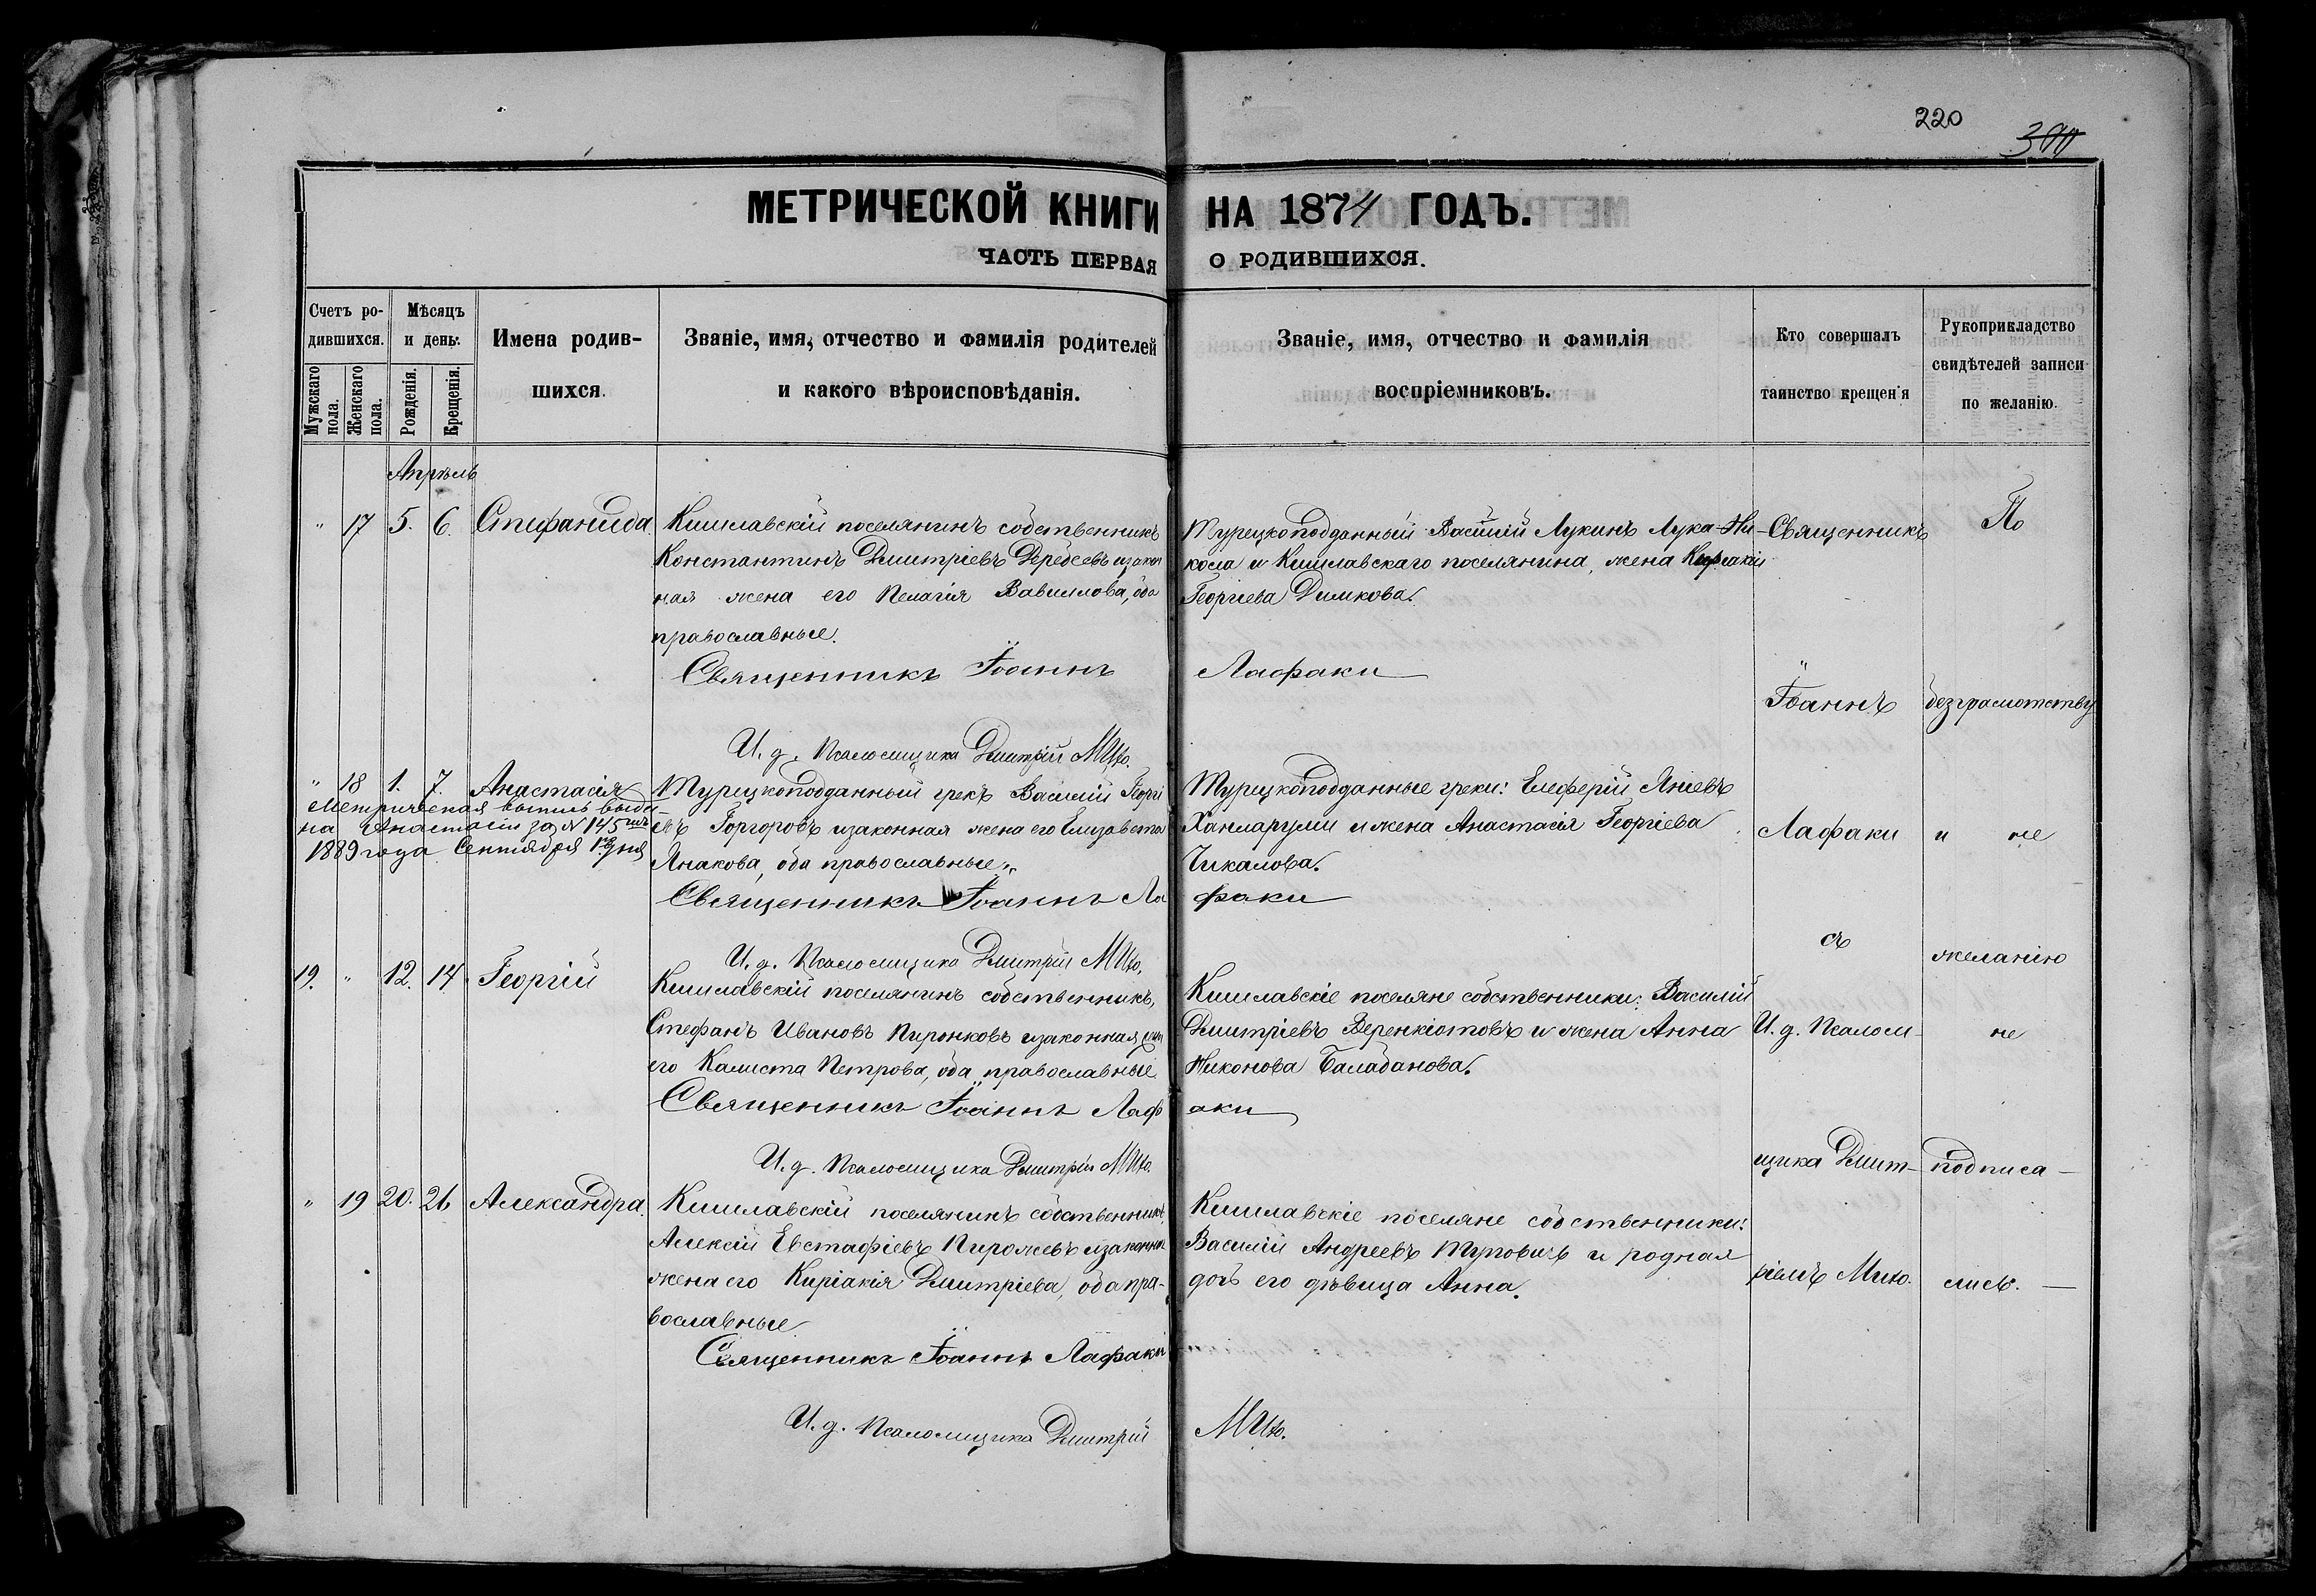 220
300
МЕТРИЧЕСКОЙ КНИГИ НА 1874 ГОДЪ.
ЧАСТЬ ПЕРВАЯ О РОДИВШИХСЯ.
Счетъ ро-
дившихся.
Мужскаго пола.
Женскаго пола.
Мѣсяцъ
и день.
Рожденія.
Крещенія.
Имена родив-
шихся.
Званіе, имя, отчество и фамилія родителей
и какого вѣроисповѣданія.
Званіе, имя, отчество и фамилія
воспріемниковъ.
Кто совершалъ
таинство крещенія
Рукоприкладство
свидѣтелей записи
по желанію.
Апрѣль
" 17 5. 6. Стефанида.
Кишлавскій поселянинъ собственникъ
Константинъ Дмитріевъ Дередеевъ и закон
ная жена его Пелагія Вавилова, оба
православные.
Священникъ Іоаннъ Лафаки
И. д. Псаломщика Дмитрій Мию.
Турецкоподданный Василій Лукинъ Лука-Ни-
кола и Кишлавскаго поселянина, жена
Георгіева Димкова.
" 18 1. 7. Анастасія
Метрическая выпись выда
на Анастасіи за № 145
1889 года Сентября дня
Турецкоподданный грекъ Василій Георгі
евъ Горгоровъ и законная жена его Елизавета
Янакова, оба православные.
Священникъ Іоаннъ Лафаки
И. д. Псаломщика Дмитрій Мию.
Турецкоподданные греки: Елеферій Яніевъ
Ханларули и жена Анастасія Георгіева
Чикалова.
19. " 12. 14. Георгій
Кишлавскій поселянинъ собственникъ,
Стефанъ Ивановъ Пиронковъ и законная жена
его Калиста Петрова, оба православные.
Священникъ Іоаннъ Лафаки
И. д. Псаломщика Дмитрій Мию.
Кишлавскіе поселяне собственники: Василій
Дмитріевъ Веренкіотовъ и жена Анна
Никонова Балабанова.
" 19 20. 26 Александра.
Кишлавскій поселянинъ собственникъ,
Алексій Евстафіевъ Пирожевъ и законная
жена его Киріакія Дмитріева, оба пра-
вославные
Священникъ Іоаннъ Лафаки
И. д. Псаломщика Дмитрій Мию.
Кишлавскіе поселяне собственники:
Василій Андреевъ Туровичъ и родная
дочь его дѣвица Анна.
Священникъ
Іоаннъ
Лафаки
съ
И. д. Псалом-
щика Дмит-
ріемъ Мию.
По
безграмотству
и не
желанію
не
подписа-
лись.